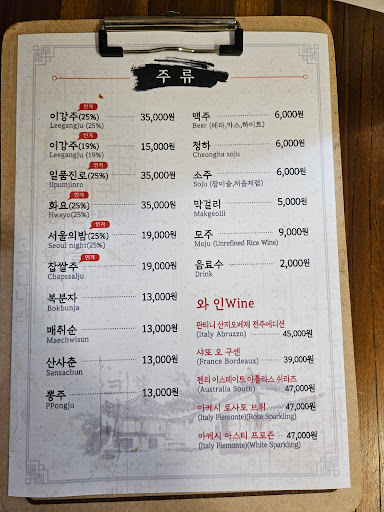 주 류
인기
이강주(25%) 35,000원
Leegangju (25%)
인기
이강주(19%) 15,000원
Leegangju (19%)
인기
일품진로(25%) 35,000원
Ilpumjinro
인기
화요(25%) 35,000원
Hwayo(25%)
인기
서울의밤(25%) 19,000원
Seoul night(25%)
인기
찹쌀주 19,000원
Chapssalju
복분자 13,000원
Bokbunja
매취순 13,000원
Maechwisun
산사춘 13,000원
Sansachun
뽕주 13,000원
PPongju
맥주 6,000원
Beer (테라,카스,하이트)
청하 6,000원
Cheongha soju
소주 6,000원
Soju (참이슬,처음처럼)
막걸리 5,000원
Makgeolli
모주 9,000원
Moju (Unrefined Rice Wine)
음료수 2,000원
Drink
와 인Wine
판티니 산지오베제 전주에디션
(Italy Abruzzo) 45,000원
샤또 오 구센
(France Bordeaux) 39,000원
헨리 이스테이트 아틀라스 쉬라즈
(Australia South) 47,000원
아케시 로사토 브뤼 47,000원
(Italy Piemonte)(Rose Sparkling)
아케시 아스티 프로즌 47,000원
(Italy Piemonte)(White Sparkling)